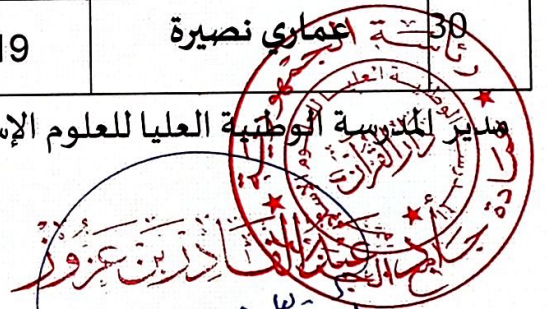 30 عماري نصيرة 19
مدير المدرسة الوطنية العليا للعلوم الإس
رئاسة الجمهورية
عمادة جامع الجزائر
المدرسة الوطنية العليا للعلوم
دار القرآن
عبد القادر بن عزوز